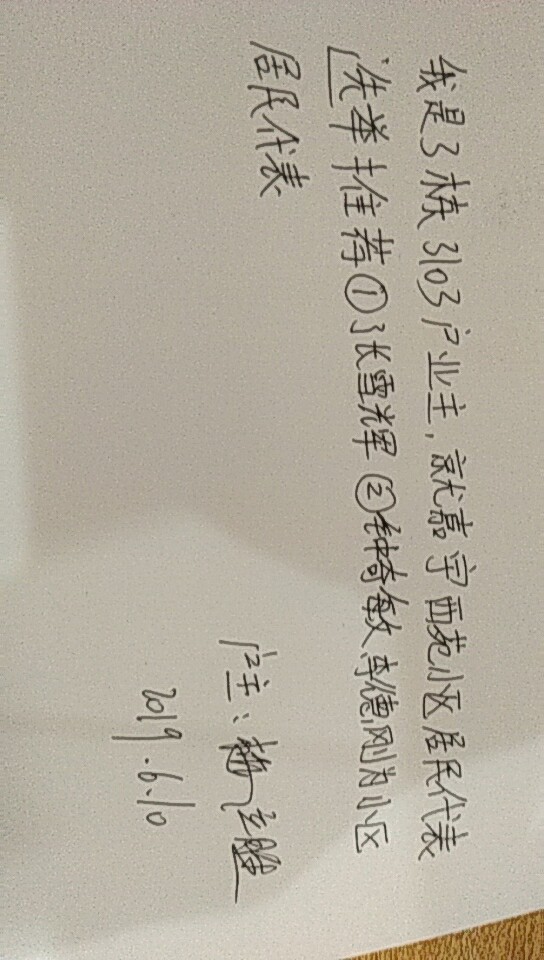 我是3栋3103户业主，就嘉宇西苑小区居民代表
选举推荐①张雪辉②钟奇敏李德刚为小区
居民代表
户主：
2019.6.10